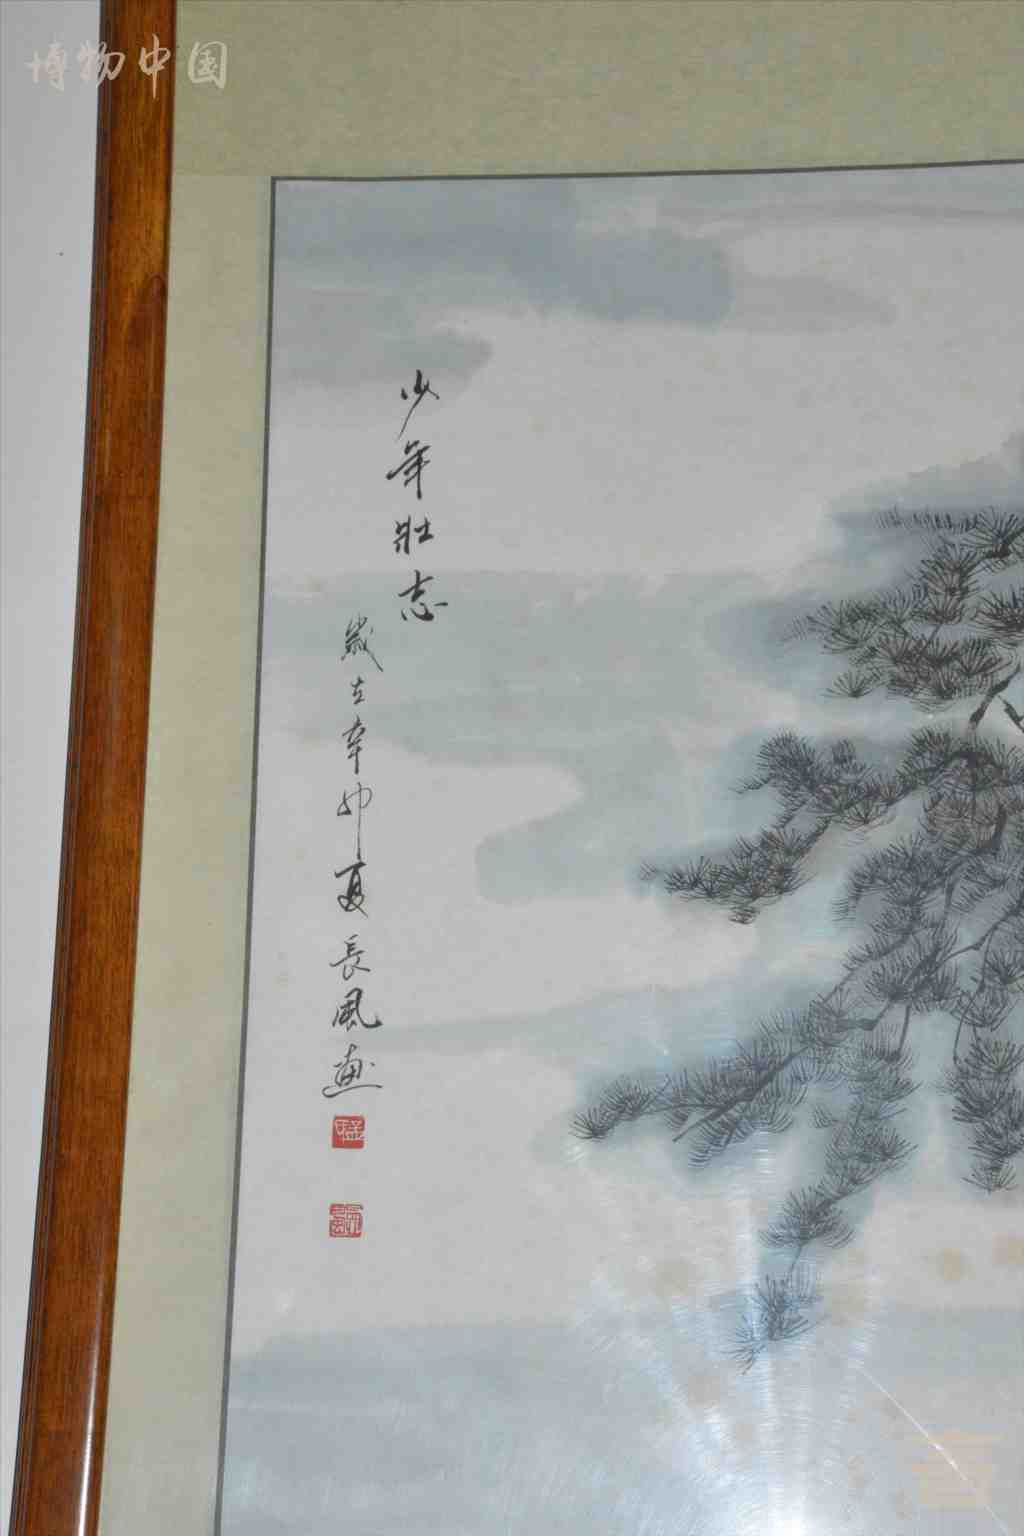 博物中国
少年壯志
歲在辛卯夏長風画